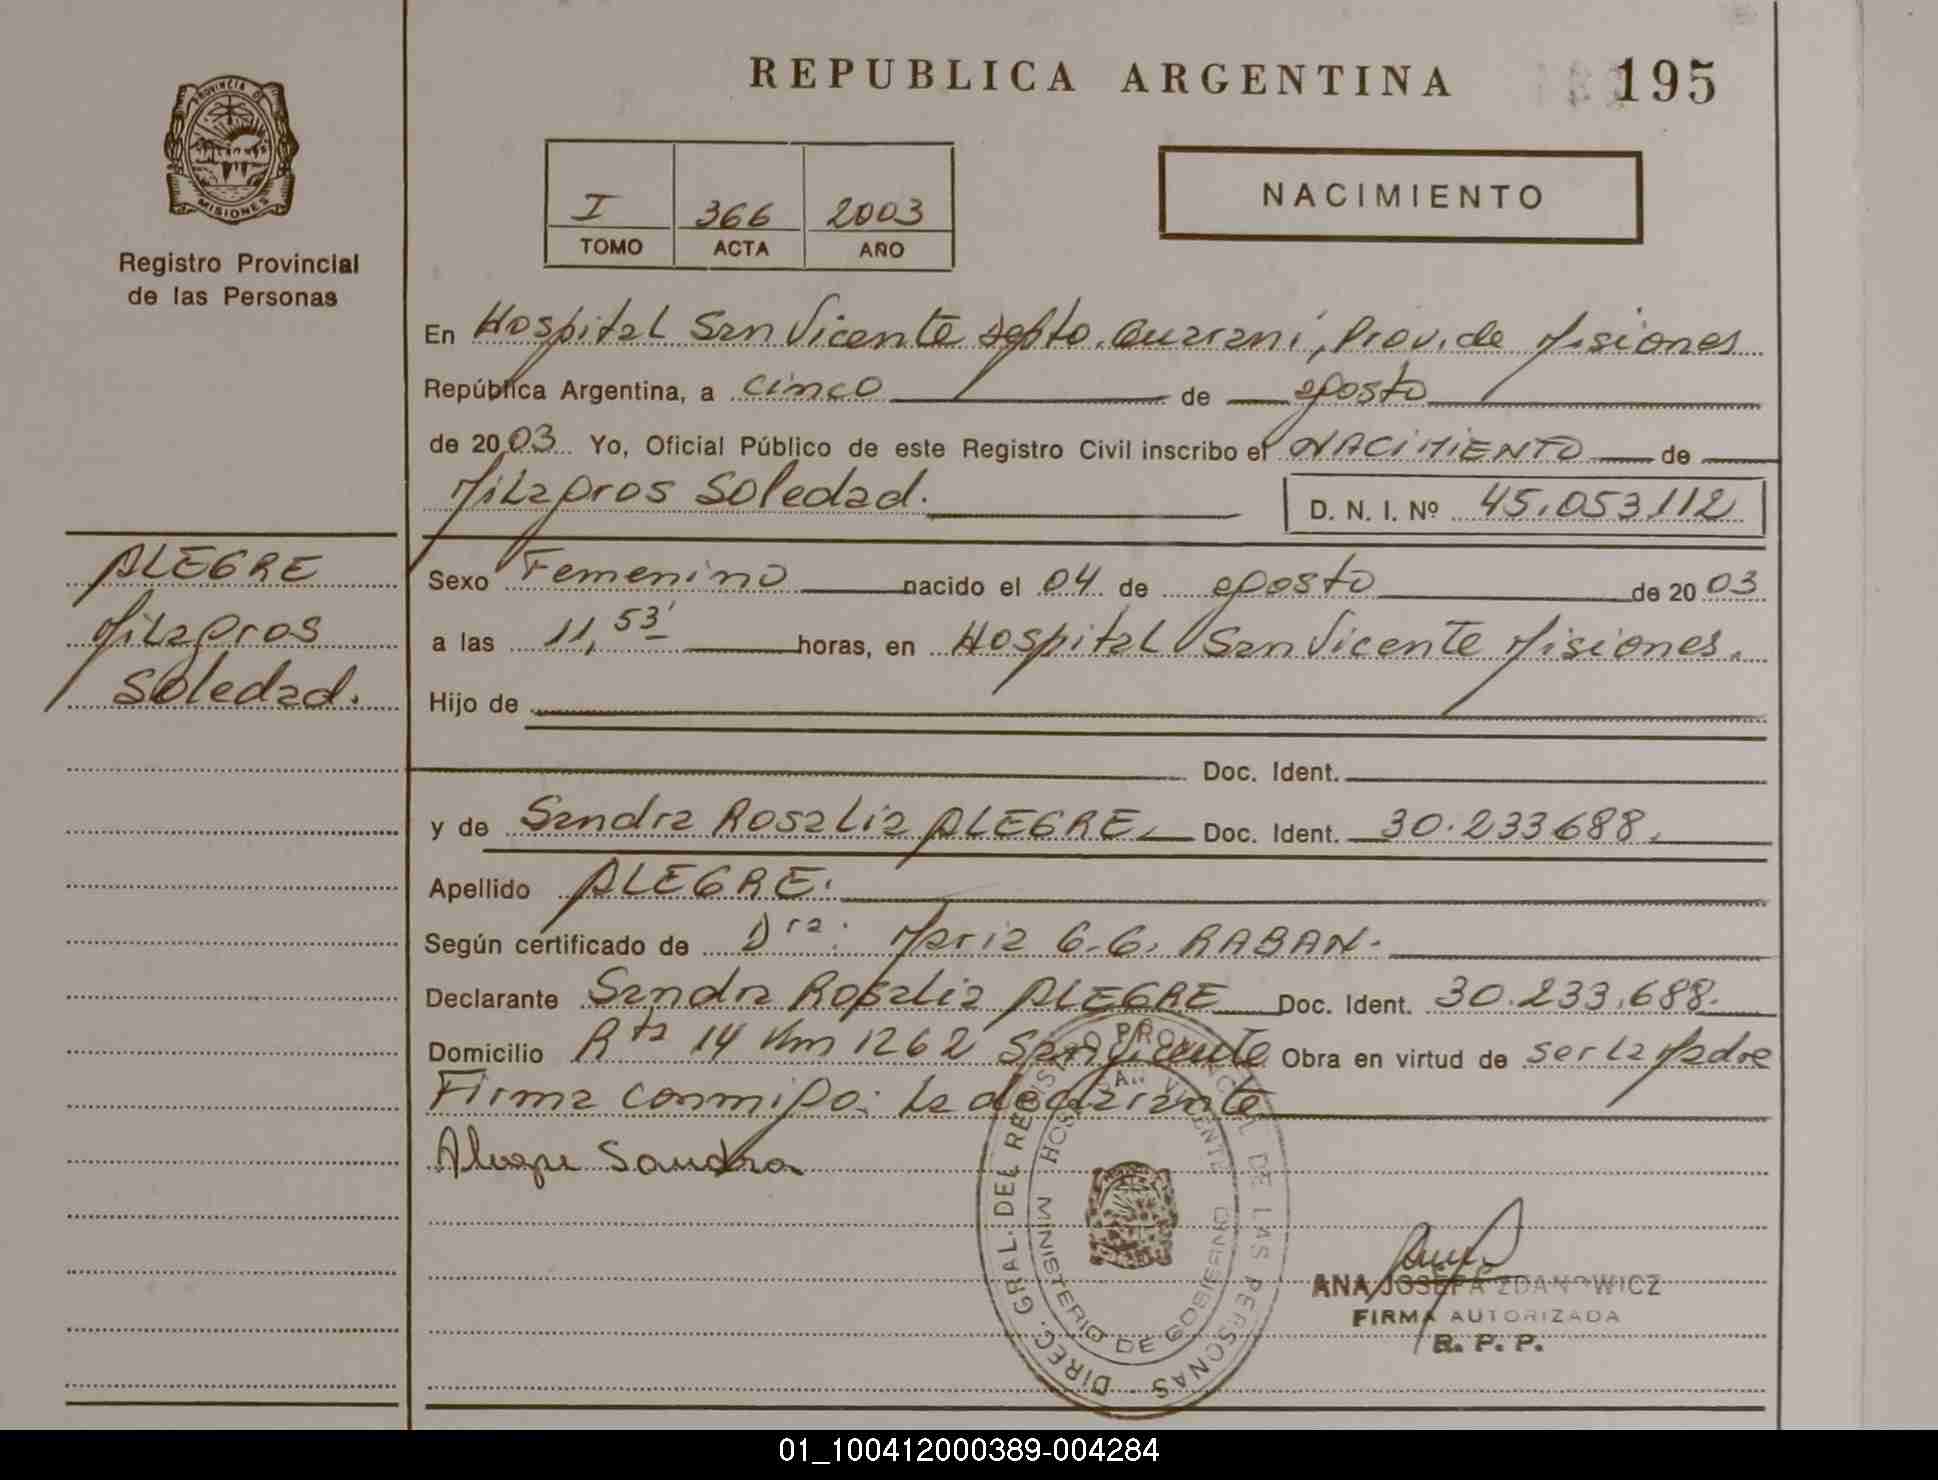 REPUBLICA ARGENTINA
195
PROVINCIA DE
MISIONES
Registro Provincial
de las Personas
I 366 2003
TOMO ACTA AÑO
NACIMIENTO
En Hospital San Vicente Depto. Guarani, Prov. de Misiones
República Argentina, a cinco de agosto
de 2003 Yo, Oficial Público de este Registro Civil inscribo el NACIMIENTO de
Milagros Soledad.
D. N. I. Nº 45.053.112
ALEGRE
Milagros
Soledad.
Sexo Femenino nacido el 04 de agosto de 2003
a las 11,53' horas, en Hospital San Vicente Misiones.
Hijo de
Doc. Ident.
y de Sandra Rosalia ALEGRE. Doc. Ident. 30.233.688.
Apellido ALEGRE.
Según certificado de Dra. Maria G.G. RABAN.
Declarante Sandra Rosalia ALEGRE Doc. Ident. 30.233.688.
Domicilio Rta 14 Km 1262 San Vicente Obra en virtud de ser la Madre
Firma conmigo: la declarante
Alegre Sandra
DIREC. GRAL. DEL REGISTRO PROVINCIAL DE LAS PERSONAS
HOSP. SAN VICENTE
MINISTERIO DE GOBIERNO
ANA JOSEFA ZDANOWICZ
FIRMA AUTORIZADA
R. P. P.
01_100412000389-004284